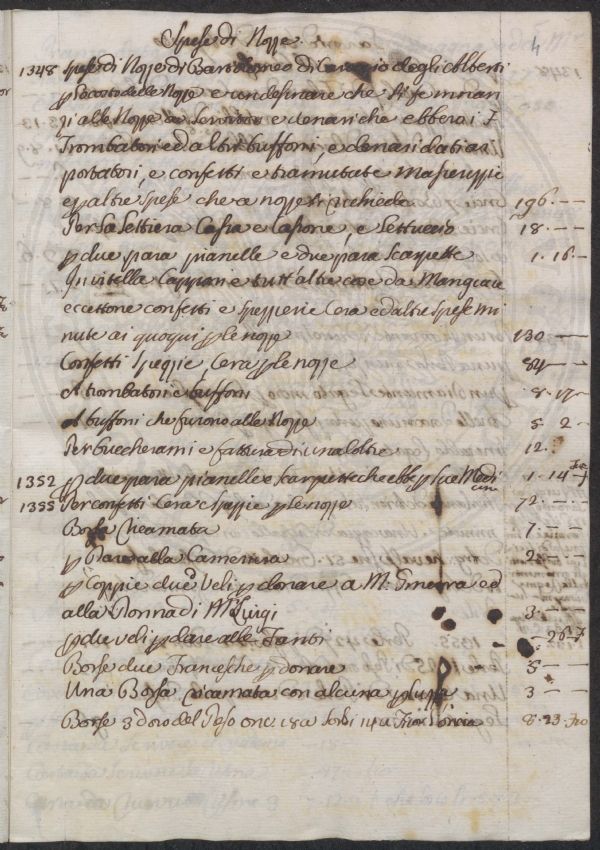 Spese di Nozze.
4
1348 Spese di Nozze di Bartolomeo di Caroccio degli Alberti
p Nozze e un desinare che si fe innan
zi alle Nozze e denari che ebbero i
Trombatori ed altri buffoni, e denari dati a
portatori, e confetti e tramutate Maserizie
e altre Spese che a nozze si richiede 196. — —
Per la Lettiera Cassa e Cassone, e Lettuccio 18. — —
p due para pianelle e due para Scarpette 1. 16. —
In vitella Capponi e tutt'altre cose da Mangiare
eccettone confetti e Spezzerie Cera ed altre Spese mi
nute ai quoqui p le nozze 130 — —
Confetti Spezzie Cera p le nozze 84 — —
A trombatori e buffoni 8. 17 —
A buffoni che furono alle Nozze 8. 2 —
Per buccherami e fattura di una Coltre 12.
1352 p due para pianelle e Scarpette che ebbe p sue Nozze 1. 14.
1355 Per confetti Cera e Spezzie p le nozze 72. — —
Borsa 7. — —
p Dare alla Cameriera 2 — —
p Coppie due di Veli p donare a M.ª Ginevra ed
alla Donna di M.r Luigi 3. — —
p due veli p dare alle Fanti — 26. 7
Borse due Francesche p donare 5 — —
Una Borsa ricamata con alcuna 3 — —
Borse 3 d'oro del Peso onc. 18 a 8. 23.